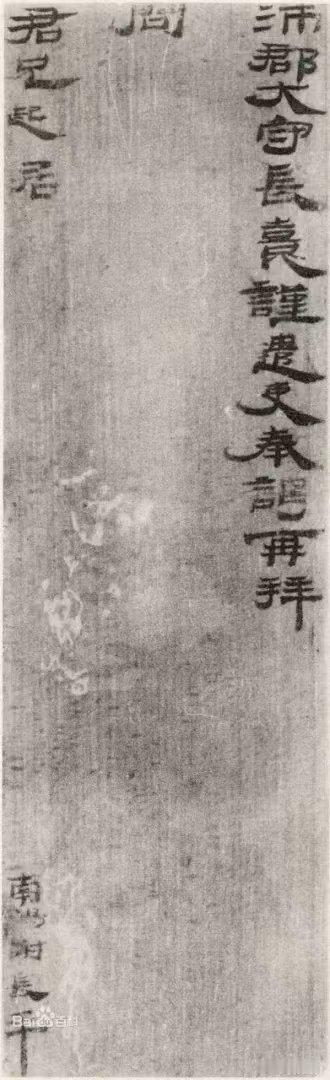 沛郡大守長憙謹遣吏奉謁再拜
問
君兄起居
南陽謝長平
Baidu百科